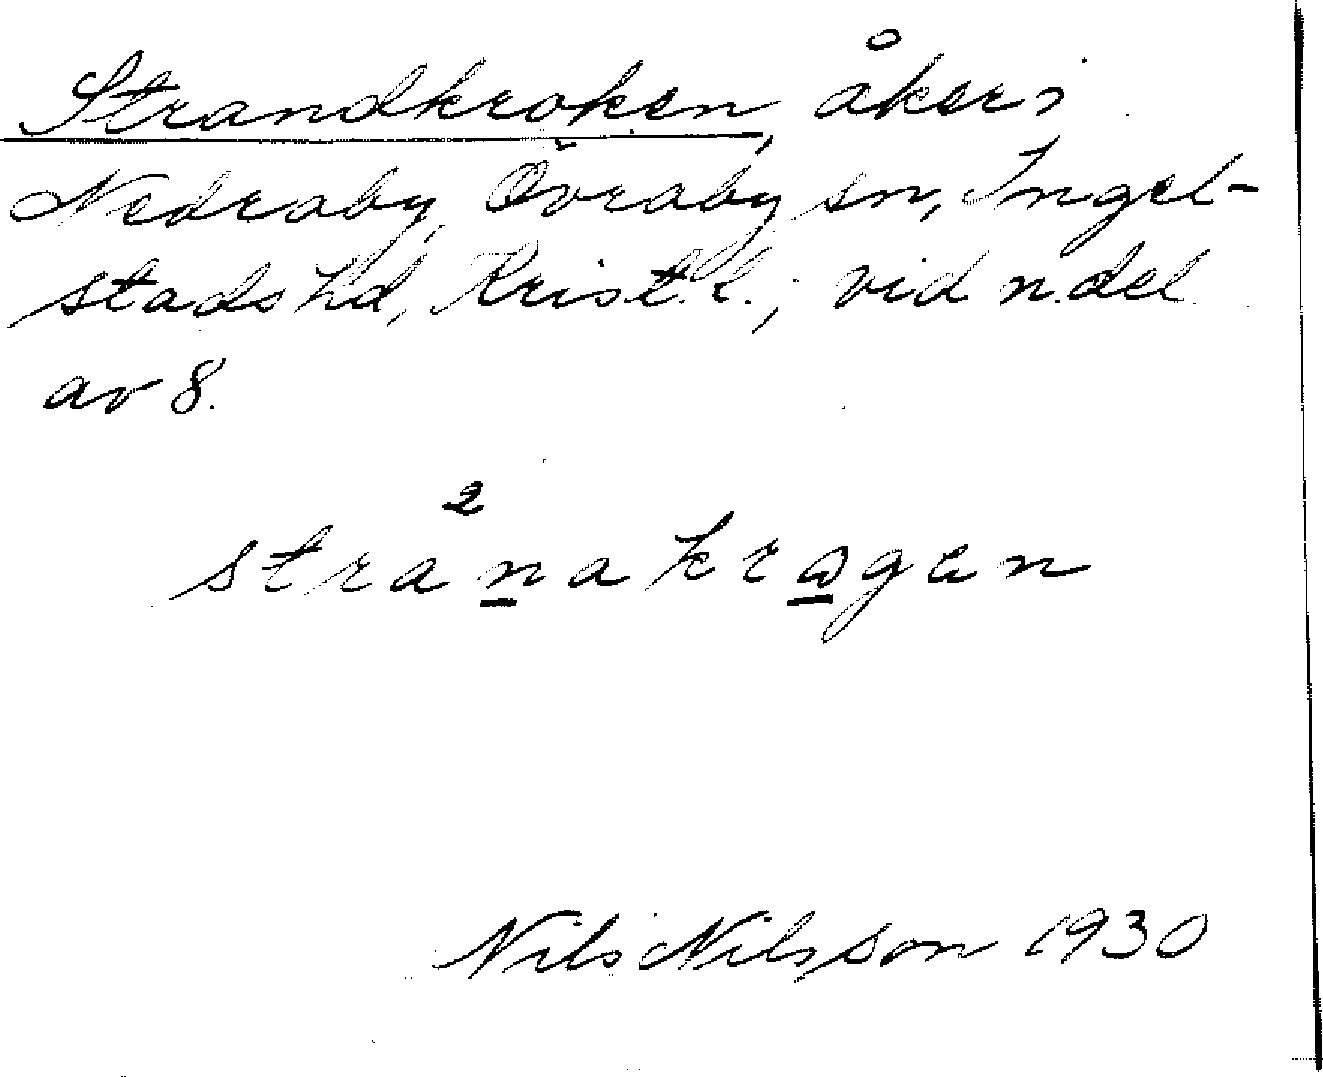 Strandkroken, åker i
Nedraby, Övraby sn, Ingel-
stads hd, Krist. l.; vid n. del
av 8.
2
stranakragen
Nils Nilsson 1930